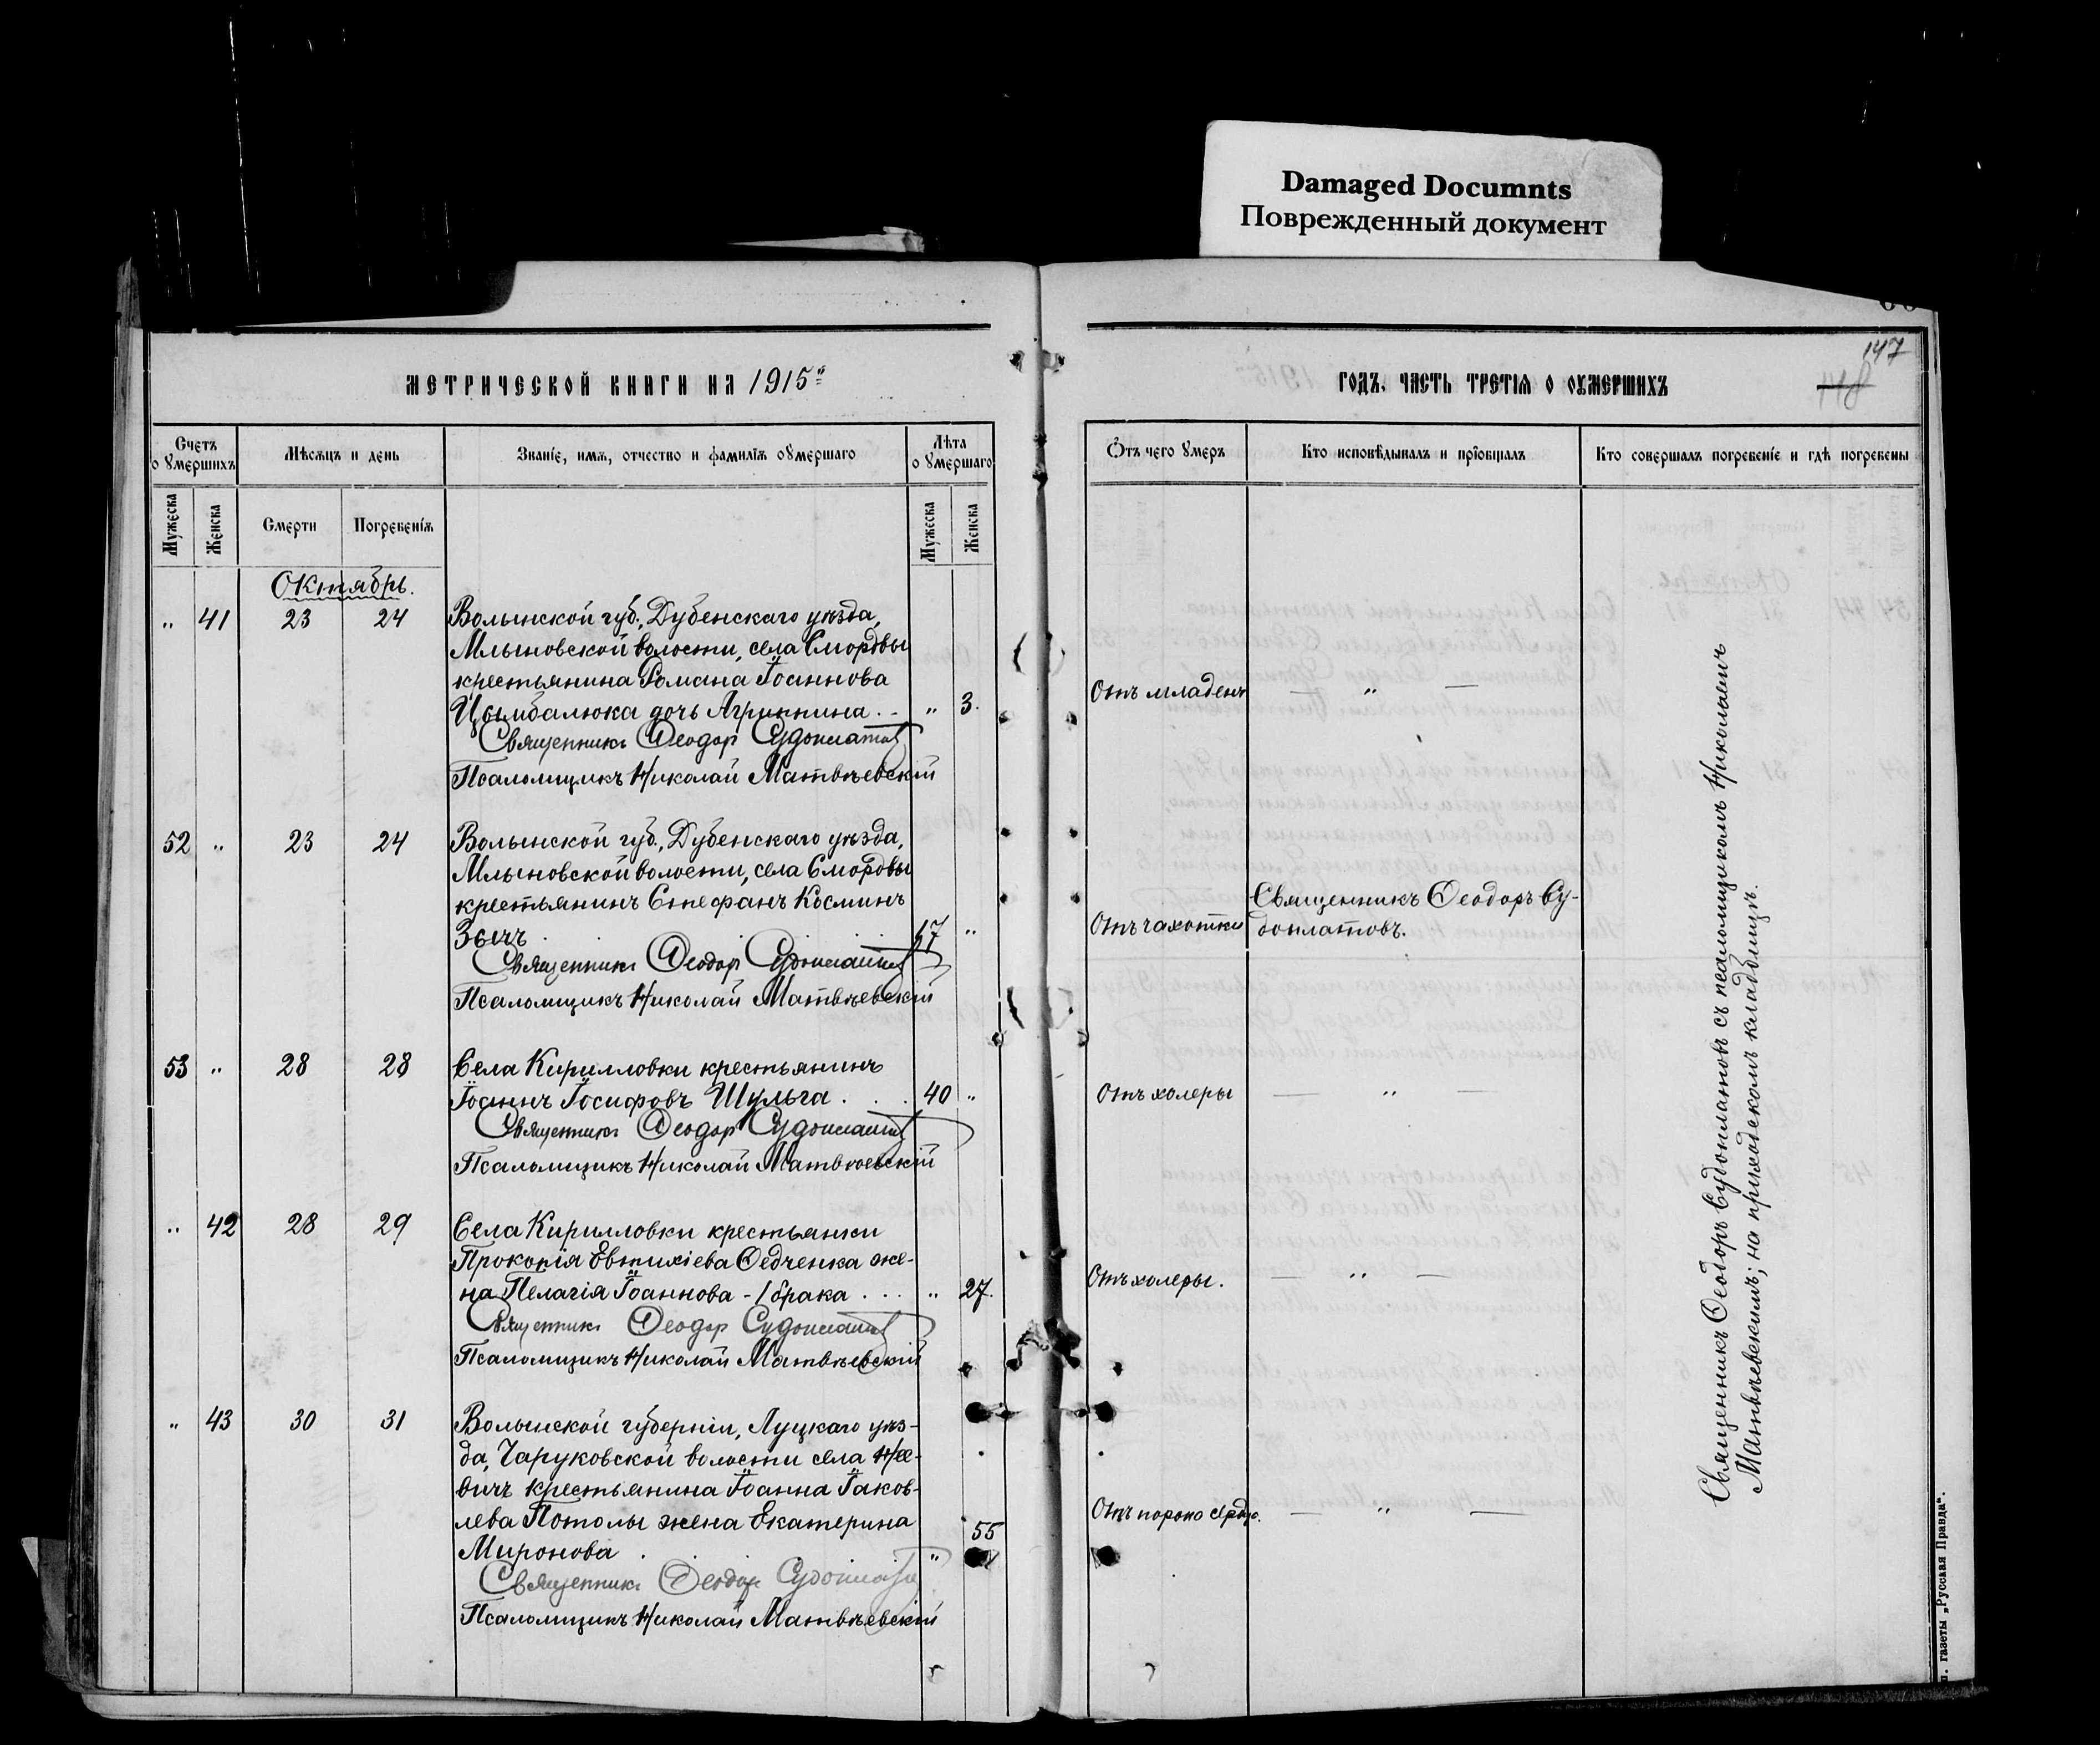 Damaged Documnts
Поврежденный документ
147
118
МЕТРИЧЕСКОЙ КНИГИ НА 1915й
ГОДЪ. ЧАСТЬ ТРЕТІЯ О ОУМЕРШИХЪ
Счетъ о умершихъ
Мѣсяцъ и день
Званіе, имя, отчество и фамилія оумершаго
Лѣта оумершаго
Отъ чего умеръ
Кто исповѣдывалъ и пріобщалъ
Кто совершалъ погребеніе и гдѣ погребены
Мужеска
Женска
Смерти
Погребенія
Мужеска
Женска
Октябрь.
" 41 23 24 Волынской губ., Дубенскаго уѣзда,
Млыновской волости, села Смордвы
крестьянина Романа Іоаннова
Цымбалюка дочь Агриппина . . " 3. Отъ младен. — " —
Священникъ Ѳеодоръ Судоплатовъ
Псаломщикъ Николай Матвѣевскій
52 " 23 24 Волынской губ., Дубенскаго уѣзда,
Млыновской волости, села Смордвы
крестьянинъ Стефанъ Косминъ
Зычъ . . . 17 " Отъ чахотки Священникъ Ѳеодоръ Су-
доплатовъ.
Священникъ Ѳеодоръ Судоплатовъ
Псаломщикъ Николай Матвѣевскій
53 " 28 28 Села Кирилловки крестьянинъ
Іоаннъ Іосифовъ Шульга . . . 40 " Отъ холеры — " —
Священникъ Ѳеодоръ Судоплатовъ
Псаломщикъ Николай Матвѣевскій
" 42 28 29 Села Кирилловки крестьянки
Прокопія Евтихіева Ѳедченка же-
на Пелагія Іоаннова - 1 брака . . . " 27. Отъ холеры. — " —
Священникъ Ѳеодоръ Судоплатовъ
Псаломщикъ Николай Матвѣевскій
" 43 30 31 Волынской губерніи, Луцкаго уѣз-
да, Чаруковской волости села Не-
вичъ крестьянина Іоанна Іаков-
лева Потолы жена Екатерина
Миронова . . " 55 Отъ порока сердц. — " —
Священникъ Ѳеодоръ Судоплатовъ
Псаломщикъ Николай Матвѣевскій
Священникъ Ѳеодоръ Судоплатовъ съ псаломщикомъ Николаемъ
Матвѣевскимъ; на приходскомъ кладбищѣ.
п. газеты „Русская Правда“.